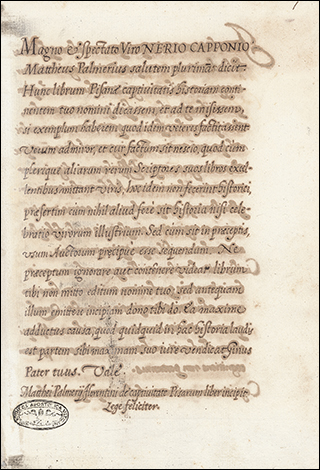 Magno & Spectato Viro NERIO CAPPONIO
Mattheus Palmerius salutem plurimā dicit
Hunc librum Pisanæ captivitatis historiam conti-
nentem tuo nomini dicassem, et ad te misissem,
si exemplum haberem quod idem veteres factitarint
Verum admiror, et cur factum sit nescio, quod cum
plerique aliarum rerum Scriptores suos libros excel-
lentibus mittant viris, hoc idem non fecerint historici,
præsertim cum nihil aliud fere sit historia nisi cele-
bratio virorum illustrium. Sed cum sit in præceptis,
usum Auctorum præcipue esse sequendum. Ne
præceptum ignorare aut contnere videar librum
tibi non mitto editum nomine tuo, sed antequam
illum emittere incipiam dono tibi do. Ea maxime
adductus causa, quod quidquid in hac historia laudis
est partem sibi maximam suo iure vendicat Ginus
Pater tuus. Vale
Matthei Palmerij florentini de captivitate Pisarum liber incipit
Lege feliciter.